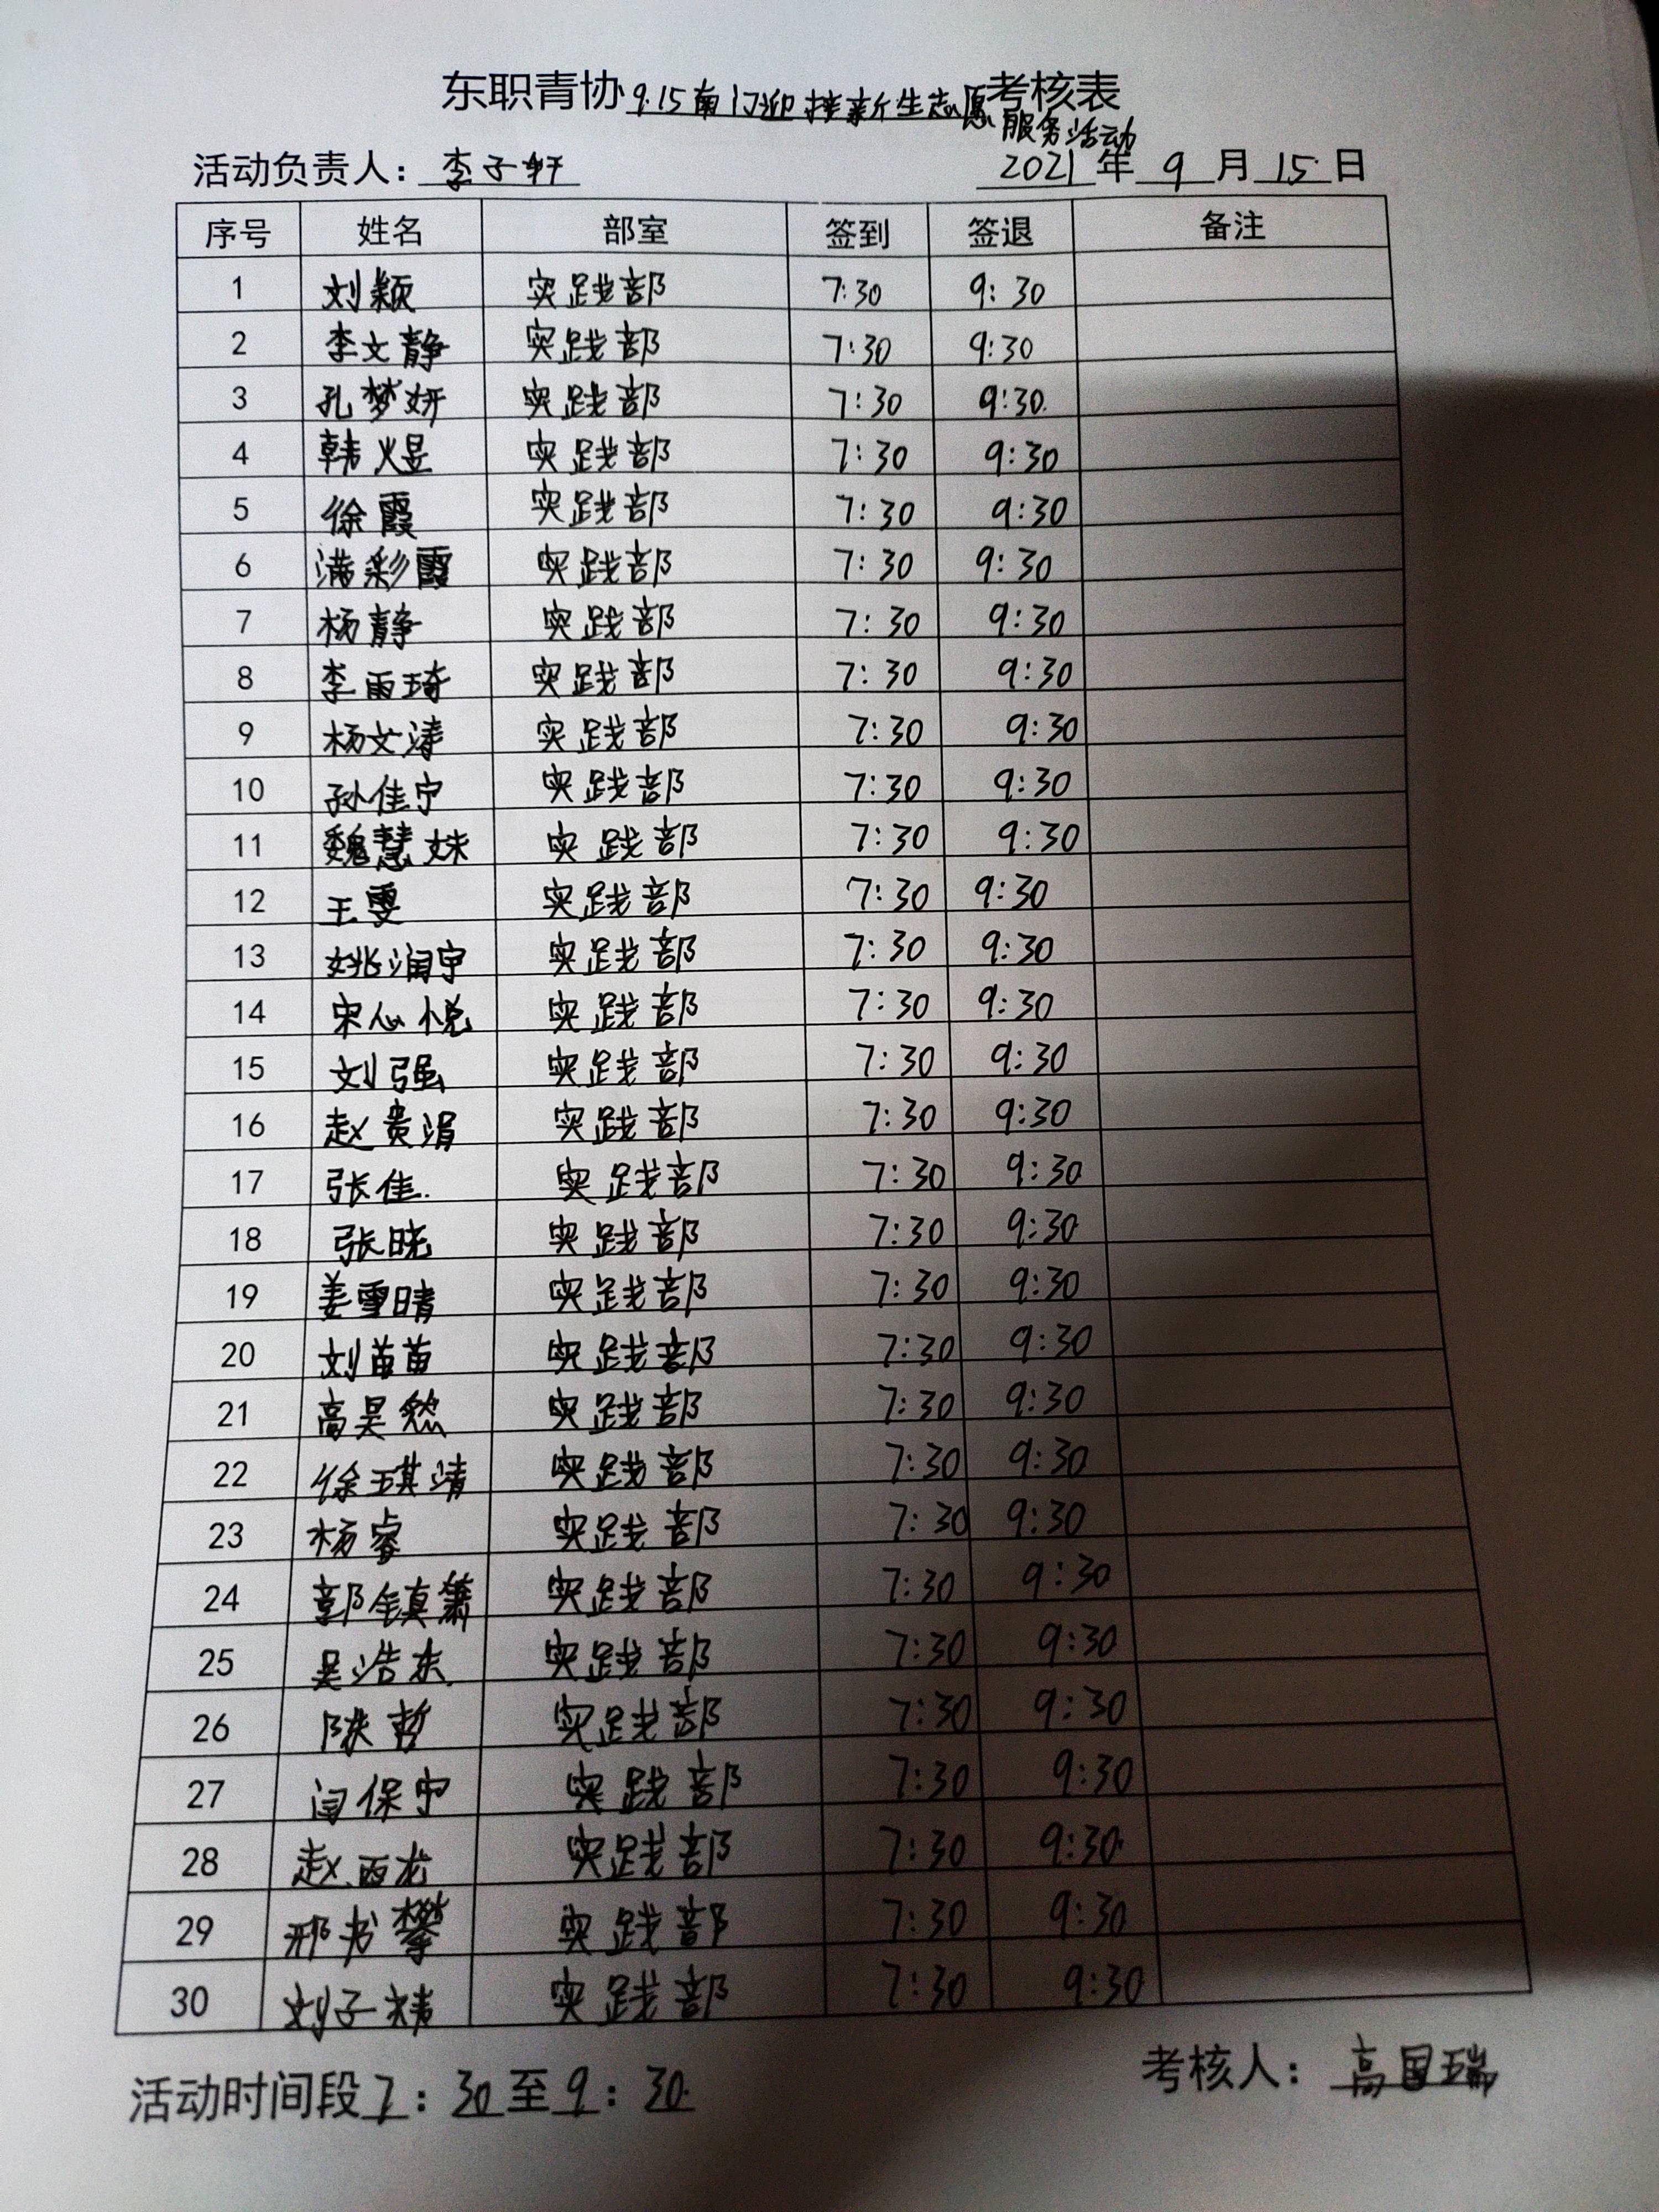 东职青协9.15南门迎接新生志愿服务活动考核表
活动负责人：李子轩 2021年9月15日
序号 姓名 部室 签到 签退 备注
1 刘颖 实践部 7:30 9:30
2 李文静 实践部 7:30 9:30
3 孔梦妍 实践部 7:30 9:30
4 韩煜 实践部 7:30 9:30
5 徐霞 实践部 7:30 9:30
6 满彩霞 实践部 7:30 9:30
7 杨静 实践部 7:30 9:30
8 李雨琦 实践部 7:30 9:30
9 杨文涛 实践部 7:30 9:30
10 孙佳宁 实践部 7:30 9:30
11 魏慧妹 实践部 7:30 9:30
12 王雯 实践部 7:30 9:30
13 姚润宇 实践部 7:30 9:30
14 宋心悦 实践部 7:30 9:30
15 刘强 实践部 7:30 9:30
16 赵贵涓 实践部 7:30 9:30
17 张佳 实践部 7:30 9:30
18 张晓 实践部 7:30 9:30
19 姜雪晴 实践部 7:30 9:30
20 刘苗苗 实践部 7:30 9:30
21 高昊然 实践部 7:30 9:30
22 徐琪清 实践部 7:30 9:30
23 杨睿 实践部 7:30 9:30
24 郭镇萧 实践部 7:30 9:30
25 吴浩东 实践部 7:30 9:30
26 陈哲 实践部 7:30 9:30
27 闫保宁 实践部 7:30 9:30
28 赵西龙 实践部 7:30 9:30
29 邢书攀 实践部 7:30 9:30
30 刘子祎 实践部 7:30 9:30
活动时间段7：30至9：30 考核人：高国瑞